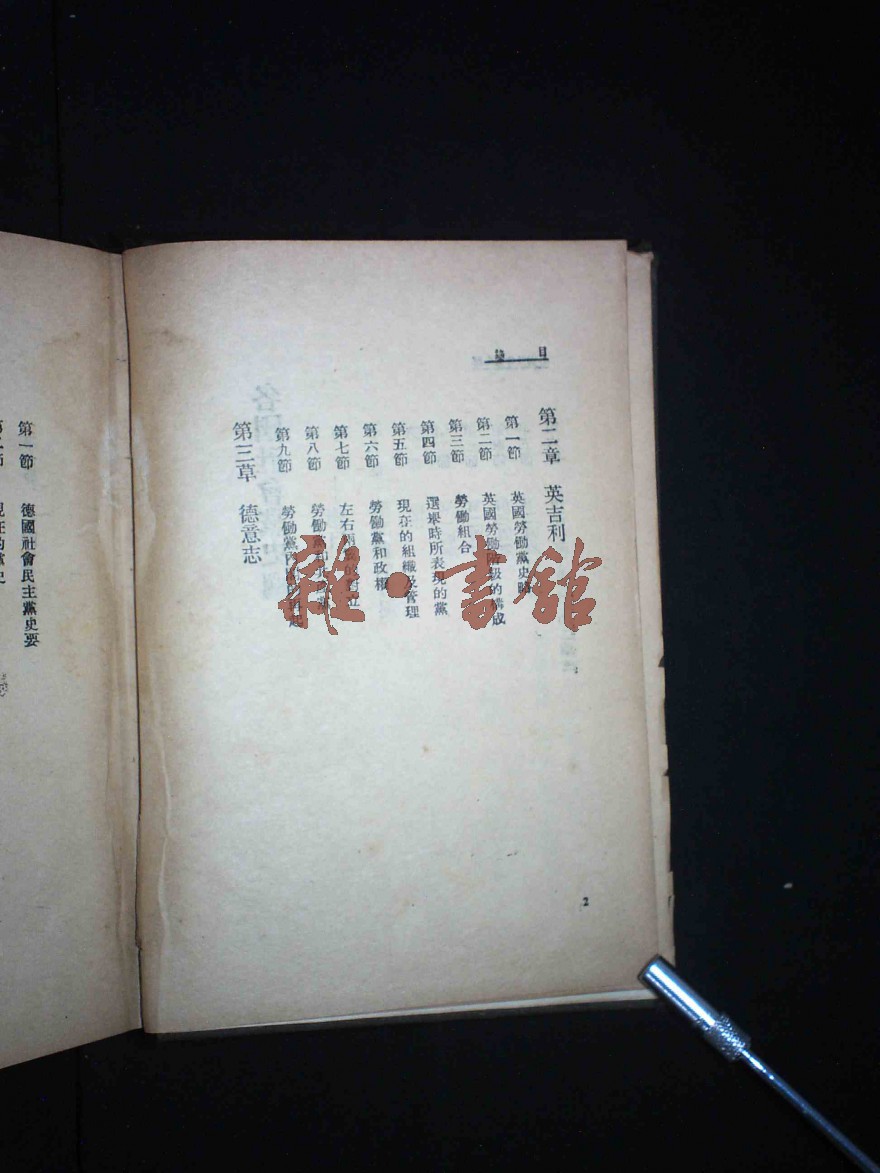 目 錄
第二章 英吉利
第一節 英國勞働黨史略
第二節 英國勞働階級的構成
第三節 勞働組合
第四節 選舉時所表現的黨
第五節 現在的組織及管理
第六節 勞働黨和政權
第七節 左右兩
第八節 勞働黨
第九節 勞働黨內
第三章 德意志
2
第一節 德國社會民主黨史要
雜·書館